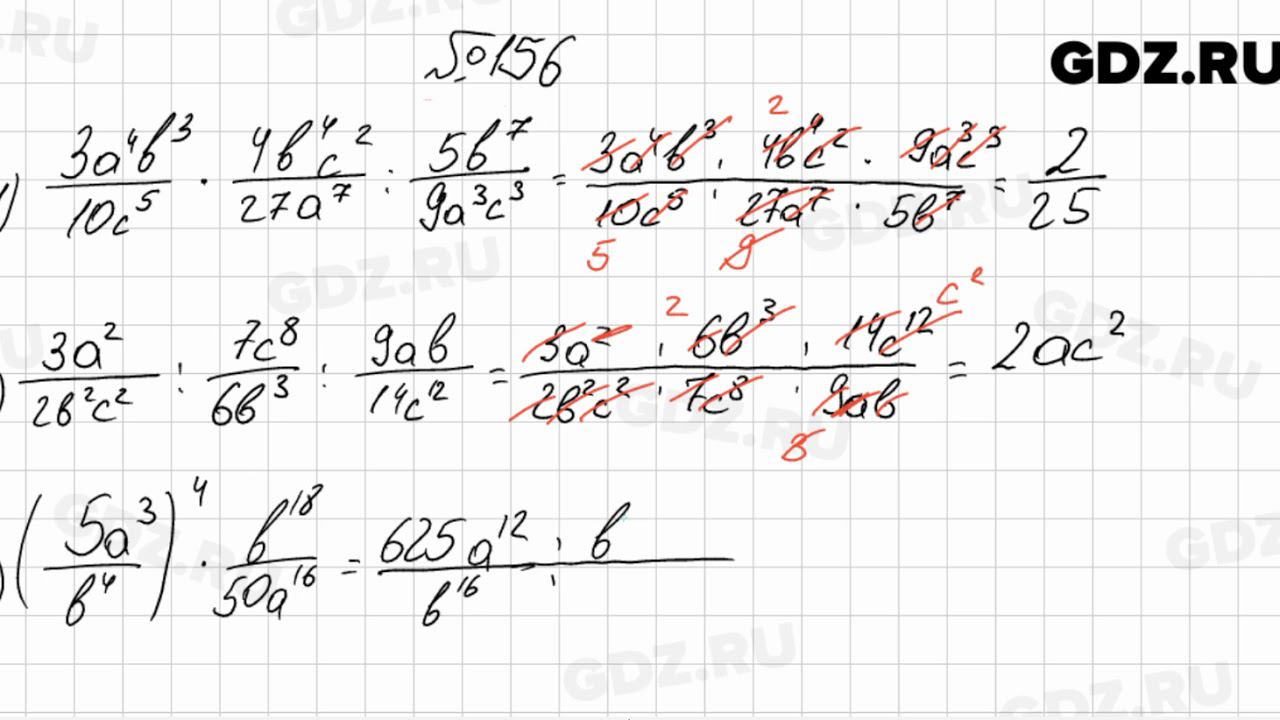 №156
GDZ.RU
1) 3a⁴b³/10c⁵ · 4b⁴c²/27a⁷ : 5b⁷/9a³c³ = 3a⁴b³ · 4b⁴c² · 9a³c³ / 10c⁵ · 27a⁷ · 5b⁷ = 2/25
2 5 9
) 3a²/2b²c² : 7c⁸/6b³ : 9ab/14c¹² = 3a² · 6b³ · 14c¹² / 2b²c² · 7c⁸ · 9ab = 2ac²
2 c² 3
) (5a³/b⁴)⁴ · b¹⁸/50a¹⁶ = 625a¹² · b / b¹⁶ ·
GDZ.RU
GDZ.RU
GDZ.RU
GDZ.RU
GDZ.RU
GDZ.RU
GDZ.RU
GDZ.RU
GDZ.RU